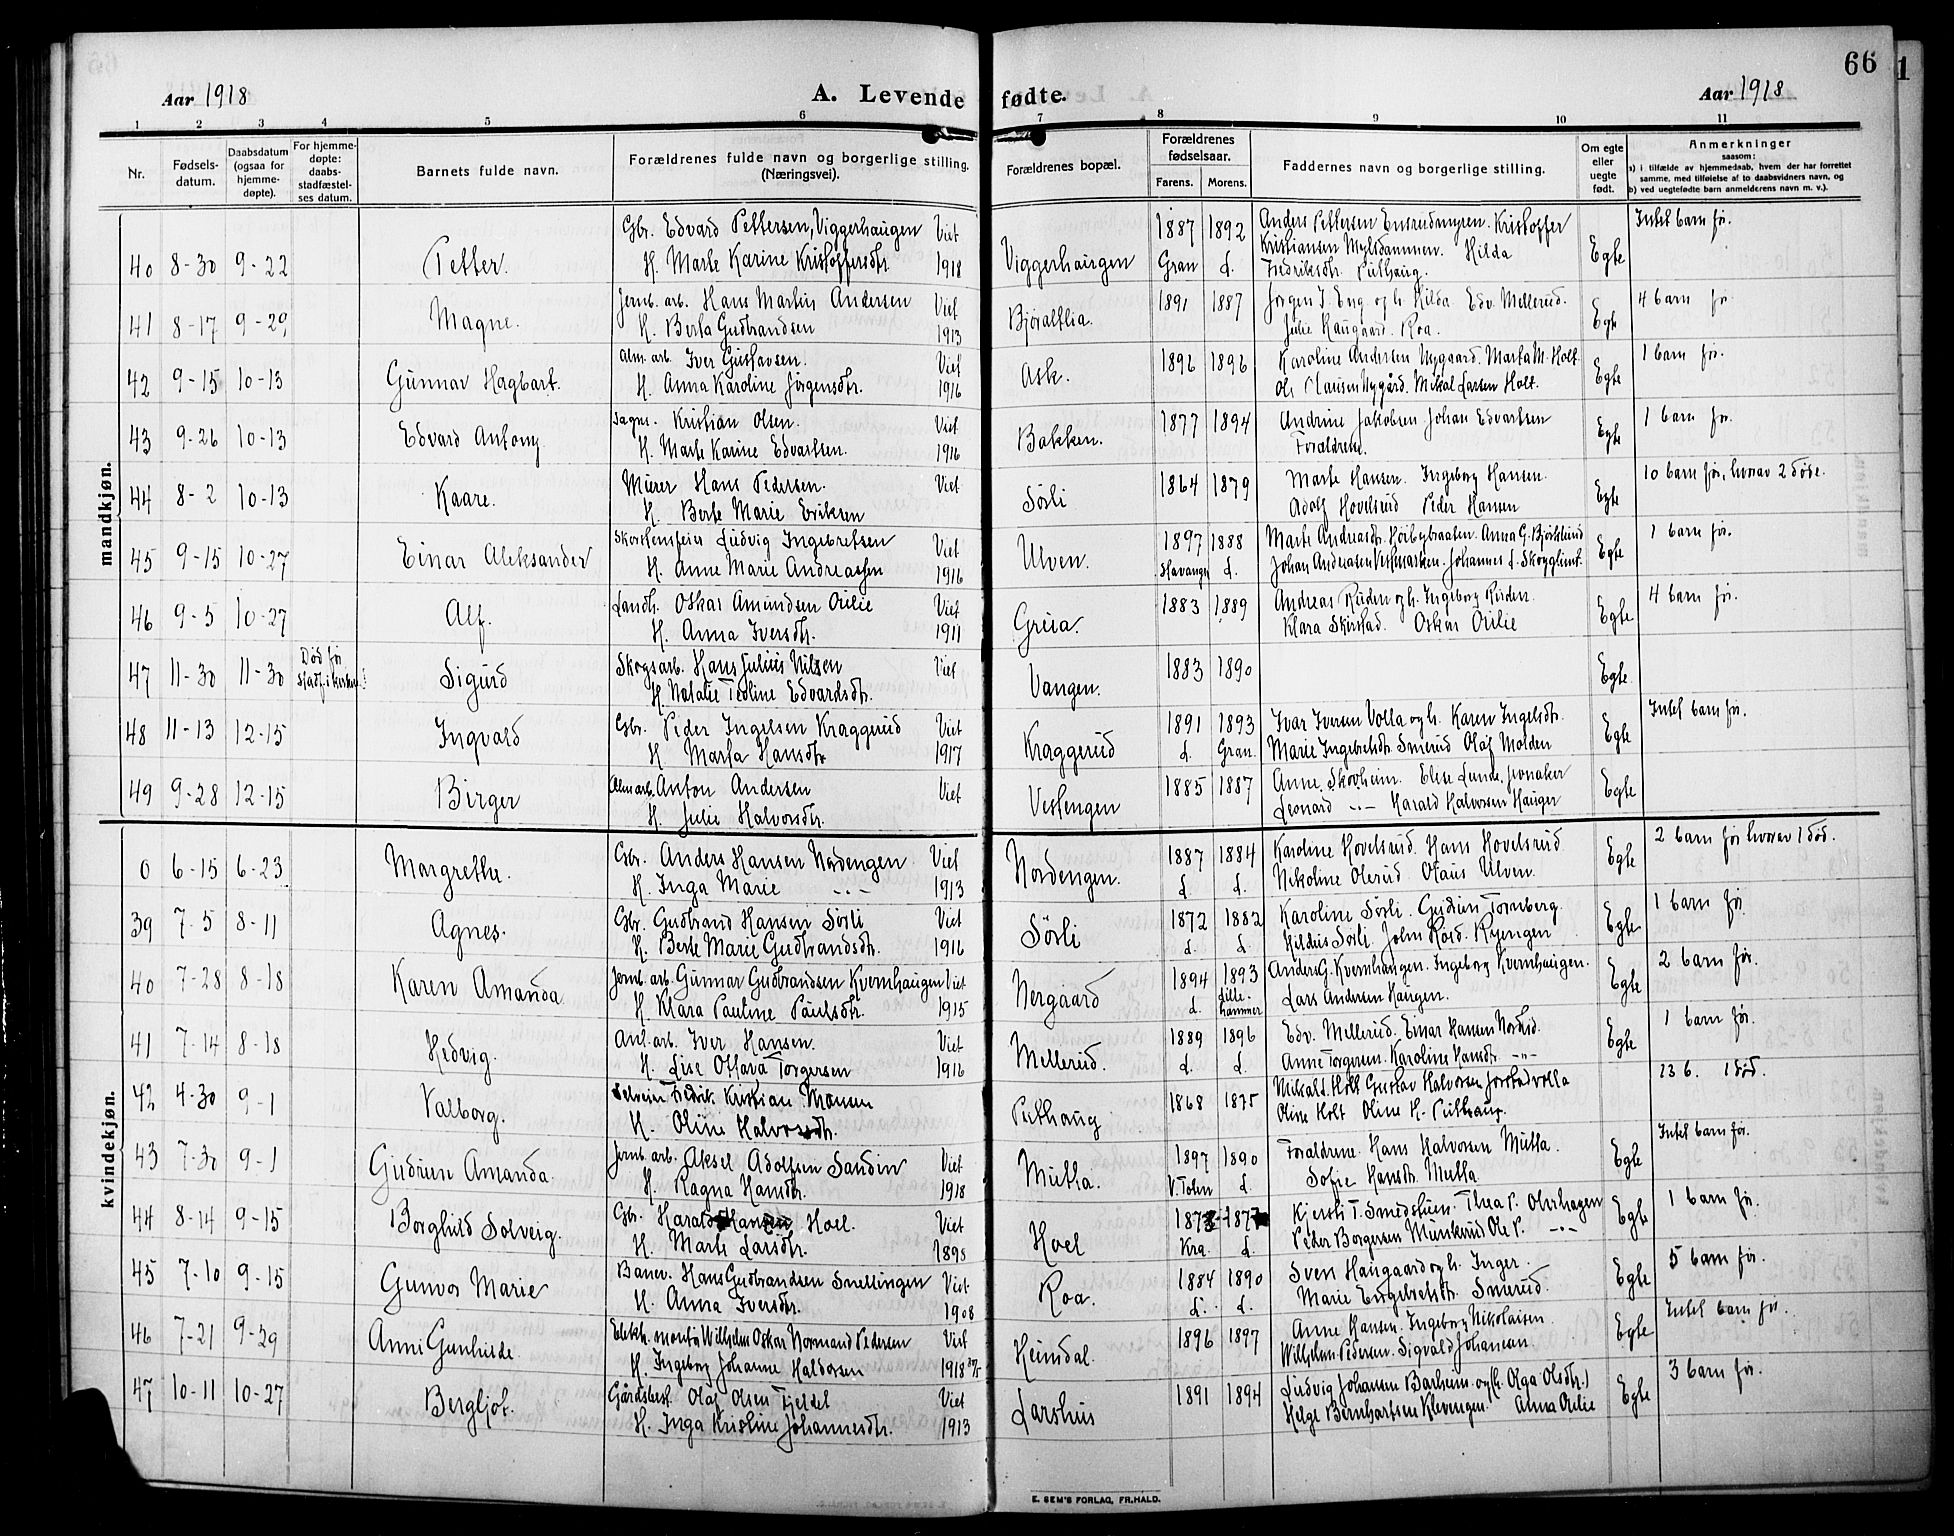 66
1
Aar 1918
A. Levende fødte.
Aar 1918
1 2 3 4 5 6 7 8 9 10 11
Nr.
Fødsels-
datum.
Daabsdatum
(ogsaa for
hjemme-
døpte).
For hjemme-
døpte:
daabs-
stadfæstel-
ses datum.
Barnets fulde navn.
Forældrenes fulde navn og borgerlige stilling.
(Næringsvei).
Forældrenes bopæl.
Forældrenes
fødselsaar.
Farens. Morens.
Faddernes navn og borgerlige stilling.
Om egte
eller
uegte
født.
Anmerkninger
saasom:
a) i tilfælde av hjemmedaab, hvem der har forrettet
samme, med tilføielse af to daabsvidners navn, og
b) ved uegtefødte barn anmelderens navn m. v.).
mandkjøn.
Gbr. Edvard Pettersen, Viggerhaugen Viet 1887 1892 Anders Pettersen Kristoffer Intet barn før.
40 8-30 9-22 Petter. H. Marte Karine Kristoffersdtr. 1918 Viggerhaugen Gran d. Kristiansen Hilda Egte
Fredriksdtr. Puthaug.
Jernb. arb. Hans Martin Andersen Viet 1891 1887 Jørgen J. Eng og h. Hilda. Edv. Mellerud. 4 barn før.
41 8-17 9-29 Magne. H. Berta Gudbrandsen 1913 Bjøraltlia. Julie Haugaard. Roa. Egte
Alm. arb. Iver Gustavsen. Viet 1896 1896 Karoline Andersen Nygaard. Marta M. Holt 1 barn før.
42 9-15 10-13 Gunnar Hagbart. H. Anna Karoline Jörgensdtr. 1916 Ask. Ole Clausen Nygård. Mikal Larsen Holt. Egte
Sagm. Kristian Olsen. Viet 1877 1894 Andrine Jakobsen Johan Edvartsen 1 barn før.
43 9-26 10-13 Edvard Antony H. Marte Karine Edvartsen. 1916 Bakken. Forældrene. Egte
Murer Hans Pedersen. Viet 1864 1879 Marte Hansen. Ingeborg Hansen. 10 barn før, hvorav 2 døde.
44 8-2 10-13 Kaare. H. Berte Marie Eriksen Sørli Adolf Hovelsrud Peder Hansen Egte
Skorstensfeier Ludvig Ingebretsen Viet 1897 1888 Marte Andreasdtr. Hoibybraaten. Anna G. Bjørklund 1 barn før.
45 9-15 10-27 Einar Aleksander H. Anne Marie Andreassen 1916 Ulven. Stavanger d. Johan Andreasen Vestmarken. Johannes L. Skogglimt. Egte
Landh. Oskar Amundsen Oulie Viet 1883 1889 Andreas Ruden og h. Ingeborg Ruden. 4 barn før.
46 9-5 10-27 Alf. H. Anna Iversdtr. 1911 Greia. Klara Skirstad. Oskar Oulie Egte
47 11-30 11-30 Død før Stadf. i kirken! Sigurd Skogsarb. Hans Julius Nilsen Viet Vangen. 1883 1890 Egte
H. Natalie Teoline Edvardsdtr.
48 11-13 12-15 Ingvald Gbr. Peder Ingelsen Kraggerud Viet 1891 1893 Ivar Iversen Volla og h. Karen Ingelsdtr. Intet barn før.
H. Marta Hansdtr 1917 Kraggerud d. Gran. Marie Ingebretsdtr. Smerud Olaf Molden Egte
49 9-28 12-15 Birger Alm arb. Anton Andersen Viet 1885 1887 Anne Skovheim. Elise Lunde, Jevnaker Egte
H. Julie Halvorsdtr. Vestengen Leonard -"- Harald Halvorsen Hauger
kvindekjøn.
0 6-15 6-23 Margrethe. Gbr. Anders Hansen Nordengen Viet 1887 1884 Karoline Hovelsrud. Hans Hovelsrud. Egte 2 barn før hvorav 1 død.
H. Inga Marie -"- 1913 Nordengen. d. d. Nikoline Olerud. Olaus Ulven.
39 7-5 8-11 Agnes. Gbr. Gudbrand Hansen Sørli Viet 1872 1882 Karoline Sørli. Gudrun Tomeberg. Egte 1 barn før.
H. Berte Marie Gudbrandsdtr. 1916 Sørli d. d. Hildus Sørli. John Ryengen
40 7-28 8-18 Karen Amanda Jernb. arb. Gunnar Gudbrandsen Kvernhaugen Viet 1894 1893 Anders G. Kvernhaugen. Ingeborg Kvernhaugen. Egte 2 barn før.
H. Klara Pauline Paulsdtr. 1915 Nergaard d. Lille-hammer Lars Andersen Haugen.
41 7-14 8-18 Hedvig. Anl. arb. Iver Hansen. Viet 1889 1896 Edv. Mellerud. Einar Hansen Egte 1 barn før.
H. Lise Ottava Torgersen 1916 Mellerud. d. d. Anne Torgersen. Karoline Hansdtr. -"-
42 4-30 9-1 Valborg. Selveier Fredrik Kristian Monsen 1868 1875 Mikal L. Holt Gustav Halvorsen 13 b. 1 død.
H. Oline Halvorsdtr. Puthaug Oline Holt Oline H. Puthaug
43 7-30 9-1 Gudrun Amanda. Jernb. arb. Aksel Adolfsen Sandin Viet 1897 1890 Forældrene. Hans Halvorsen Mutta. Egte Intet barn før.
H. Ragna Hansdtr. 1918 Mutta. V. Toten d. Sofie Hansdtr Mutta
44 8-14 9-15 Borghild Solveig. Gbr. Harald Hansen Hoel. Viet Kjersti T. Thea P. Olerhagen Egte 1 barn før.
H. Marte Larsdtr. 1895 Hoel Kra. d. Peder Borgersen Munkerud Ole P. -"-
45 7-10 9-15 Gunvor Marie Banev. Hans Gudbrandsen Snellingen Viet 1884 1890 Sven Haugaard og h. Inger. Egte 5 barn før.
H. Anna Iversdtr. 1908 Roa. d. d. Marie Engebretsdtr. Smerud.
46 7-21 9-29 Anni Gunhilde. Elektr. montør Wilhelm Oskar Normand Pedersen Viet 1896 1897 Anne Hansen. Ingeborg Nikolaisen Egte Intet barn før.
H. Ingeborg Johanne Haldorsen 1918 Heimdal. Wilhelm Pedersen. Sigvald Johansen.
47 10-11 10-27 Bergljot. Gårdsbest. Olaf Olsen Fjeldet Viet 1891 1894 Ludvig Johansen Barheim og (h. Olga Olsdtr.) Egte 3 barn før.
H. Inga Kristine Johannesdtr. 1913 Larshus Helge Bernhartsen Klevengen. Alma Oulie
E. SEM'S FORLAG, FR.HALD.